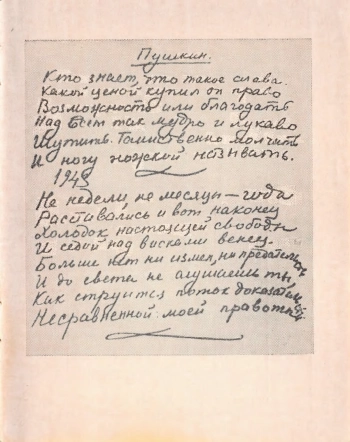 Пушкин.
Кто знает, что такое слава.
Какой ценой купил он право
Возможность или благодать
Над всем так мудро и лукаво
Шутить. Таинственно молчать
И ногу ножкой называть.
1943
Не недели, не месяцы — года
Расставались и вот, наконец
Холодок настоящей свободы
И седой над висками венец.
Больше нет ни измен, ни предательств
И до света не слушаешь ты,
Как струится поток доказательств
Несравненной моей правоты.